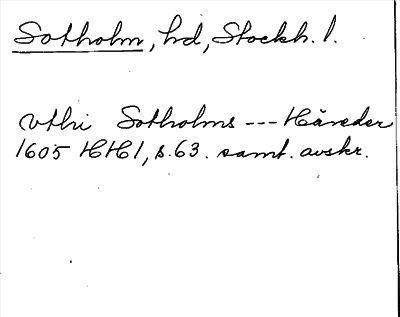 Sotholm, hd, Stockh. l.
vthi Sotholms --- Häreder
1605 HH1, s. 63. samt. avskr.